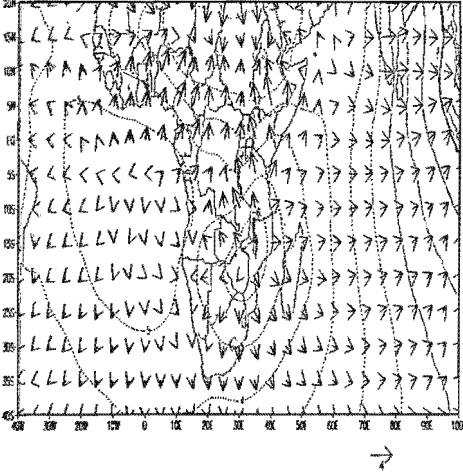 20N
15N
10N
5N
EQ
5S
10S
15S
20S
25S
30S
35S
40S
40W 30W 20W 10W 0 10E 20E 30E 40E 50E 60E 70E 80E 90E 100
4